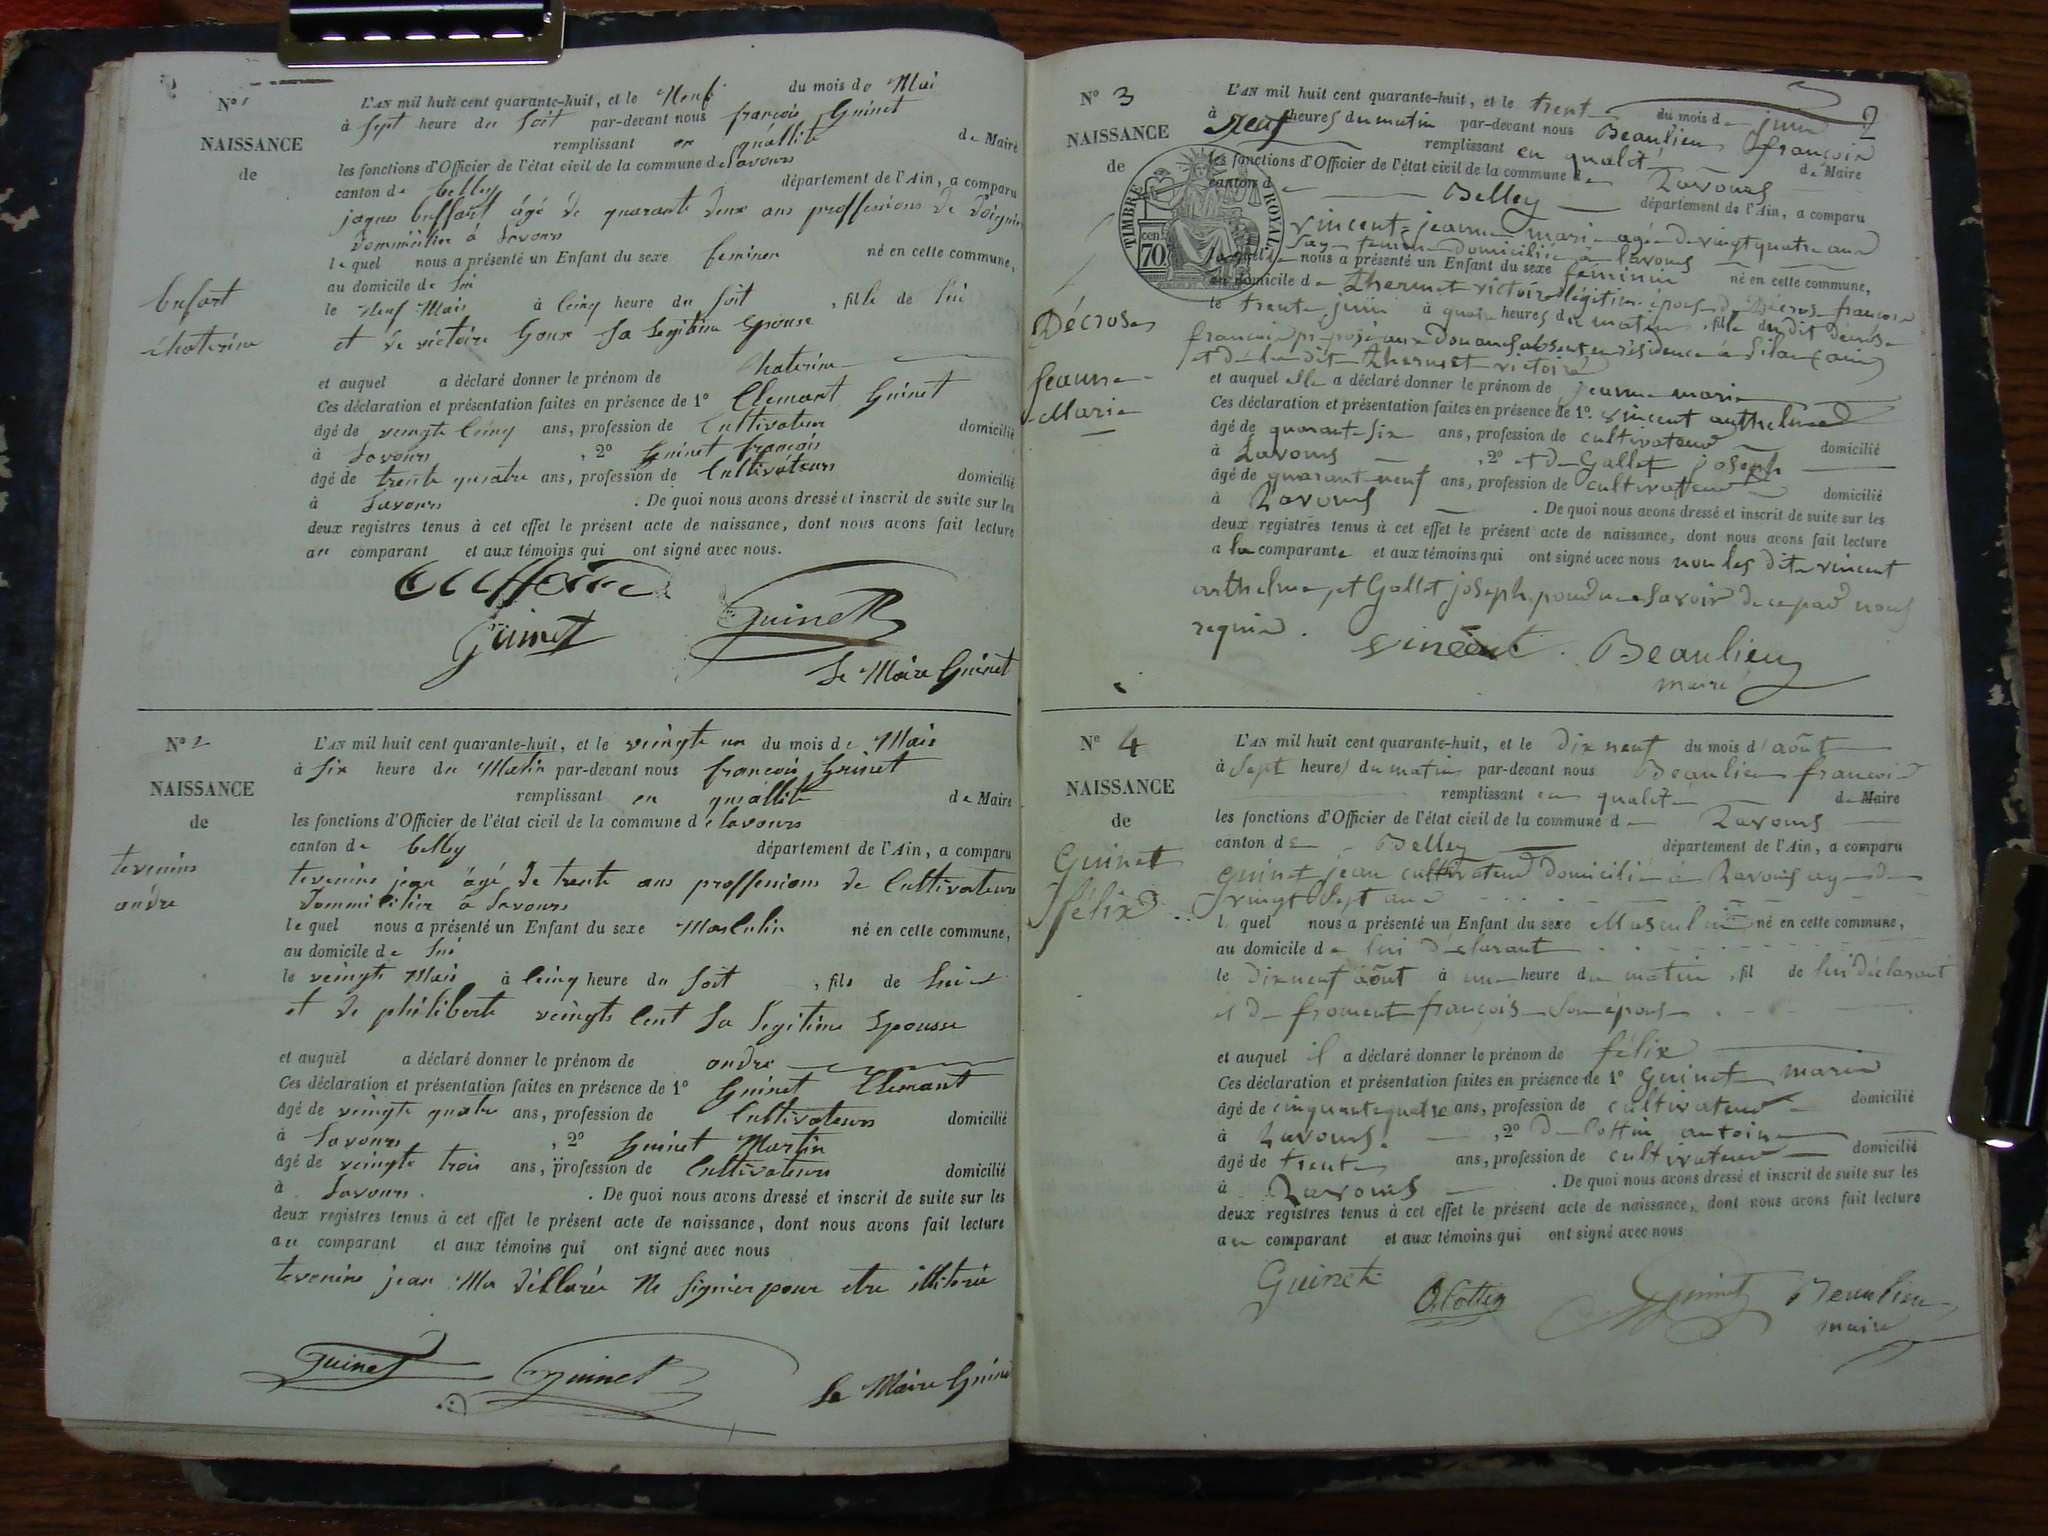 N° 1
NAISSANCE
de
bufart
chaterine
L'AN mil huit cent quarante-huit, et le Neuf du mois de Mai
à Sept heure du Soit par-devant nous françois Guinet
remplissant en quallité de Maire
les fonctions d'Officier de l'état civil de la commune de Lavours
canton de belley département de l'Ain, a comparu
jaques buffart âgé de quarante deux ans proffessions de
dommicilier à Lavours
le quel nous a présenté un Enfant du sexe feminen né en cette commune,
au domicile de lui
le Neuf Mais à Cinq heure du Soit , fille de lui
et de victoire Goux Sa Legitime Epouse
et auquel a déclaré donner le prénom de Chaterine
Ces déclaration et présentation faites en présence de 1° Clemant Guinet
âgé de veingte Cinq ans, profession de Cultivateur domicilié
à Lavours , 2° Guinet françois
âgé de trente quatre ans, profession de Cultivateurs domicilié
à Lavours . De quoi nous avons dressé et inscrit de suite sur les
deux registres tenus à cet effet le présent acte de naissance, dont nous avons fait lecture
au comparant et aux témoins qui ont signé avec nous.
Guinet Guinet
Le Maire Guinet
N° 2
NAISSANCE
de
tevenins
andre
L'AN mil huit cent quarante-huit, et le veingte un du mois de Mais
à Six heure du Matin par-devant nous françois Guinet
remplissant en quallité de Maire
les fonctions d'Officier de l'état civil de la commune de Lavours
canton de belley département de l'Ain, a comparu
tevenins jean âgé de trente ans proffessions de Cultivateurs
dommicilier à Lavours
le quel nous a présenté un Enfant du sexe Masculin né en cette commune,
au domicile de lui
le veingte Mais à Cinq heure du Soit , fils de lui
et de phéliberte veingts Cent Sa Legitime Epousse
et auquel a déclaré donner le prénom de andre
Ces déclaration et présentation faites en présence de 1° Guinet Clemant
âgé de veingte quatre ans, profession de Cultivateurs domicilié
à Lavours , 2° Guinet Martin
âgé de veingte trois ans, profession de Cultivateurs domicilié
à Lavours . De quoi nous avons dressé et inscrit de suite sur les
deux registres tenus à cet effet le présent acte de naissance, dont nous avons fait lecture
au comparant et aux témoins qui ont signé avec nous
tevenins jean Ma déllarée Ne Signier pour etre illiterée
Guinet Guinet Le Maire Guinet
2
N° 3
NAISSANCE
de
Décrose
jeanne
Marie
TIMBRE ROYAL
70 cen
L'AN mil huit cent quarante-huit, et le trent du mois de juin
à Neuf heures du matin par-devant nous Beaulieu françois
remplissant en qualité de Maire
les fonctions d'Officier de l'état civil de la commune de Lavours
canton de Belley département de l'Ain, a comparu
vincent jeanne marie agée de vingt quatre ans
Sage femme domiciliée à lavours
laquelle nous a présenté un Enfant du sexe féminin né en cette commune,
au domicile de thermet victoire légitime épouse de Décrose francois
le trente juin à quatre heures du matin , fille du dit Décrose
francois préposé aux Douanes absent en résidence à (ain)
et de la dite thermet victoire
et auquel elle a déclaré donner le prénom de jeanne marie
Ces déclaration et présentation faites en présence de 1° vincent anthelme
âgé de quarante six ans, profession de cultivateur domicilié
à Lavours , 2° et de Gallet joseph
âgé de quarante neuf ans, profession de cultivateur domicilié
à Lavours . De quoi nous avons dressé et inscrit de suite sur les
deux registres tenus à cet effet le présent acte de naissance, dont nous avons fait lecture
a la comparante et aux témoins qui ont signé avec nous non les dits vincent
anthelme, et Gallet joseph, pour ne savoir de ce par nous
requis. vincent. Beaulieu
maire
N° 4
NAISSANCE
de
Guinet
félix
L'AN mil huit cent quarante-huit, et le dix neuf du mois d'août
à Sept heures du matin par-devant nous Beaulieu francois
remplissant en qualité de Maire
les fonctions d'Officier de l'état civil de la commune de Lavours
canton de Belley département de l'Ain, a comparu
guinet jean cultivateur domicilié à Lavours agé de
vingt Sept ans
lequel nous a présenté un Enfant du sexe Masculin né en cette commune,
au domicile de lui déclarant
le dix neuf août à une heure du matin , fil de lui déclarant
et de froment françoise Son épouse
et auquel il a déclaré donner le prénom de félix
Ces déclaration et présentation faites en présence de 1° Guinet marin
âgé de cinquante quatre ans, profession de cultivateur domicilié
à Lavours. , 2° de Cottin antoine
âgé de trente ans, profession de cultivateur domicilié
à Lavours . De quoi nous avons dressé et inscrit de suite sur les
deux registres tenus à cet effet le présent acte de naissance, dont nous avons fait lecture
au comparant et aux témoins qui ont signé avec nous
Guinet A. Cottin Guinet Beaulieu
maire